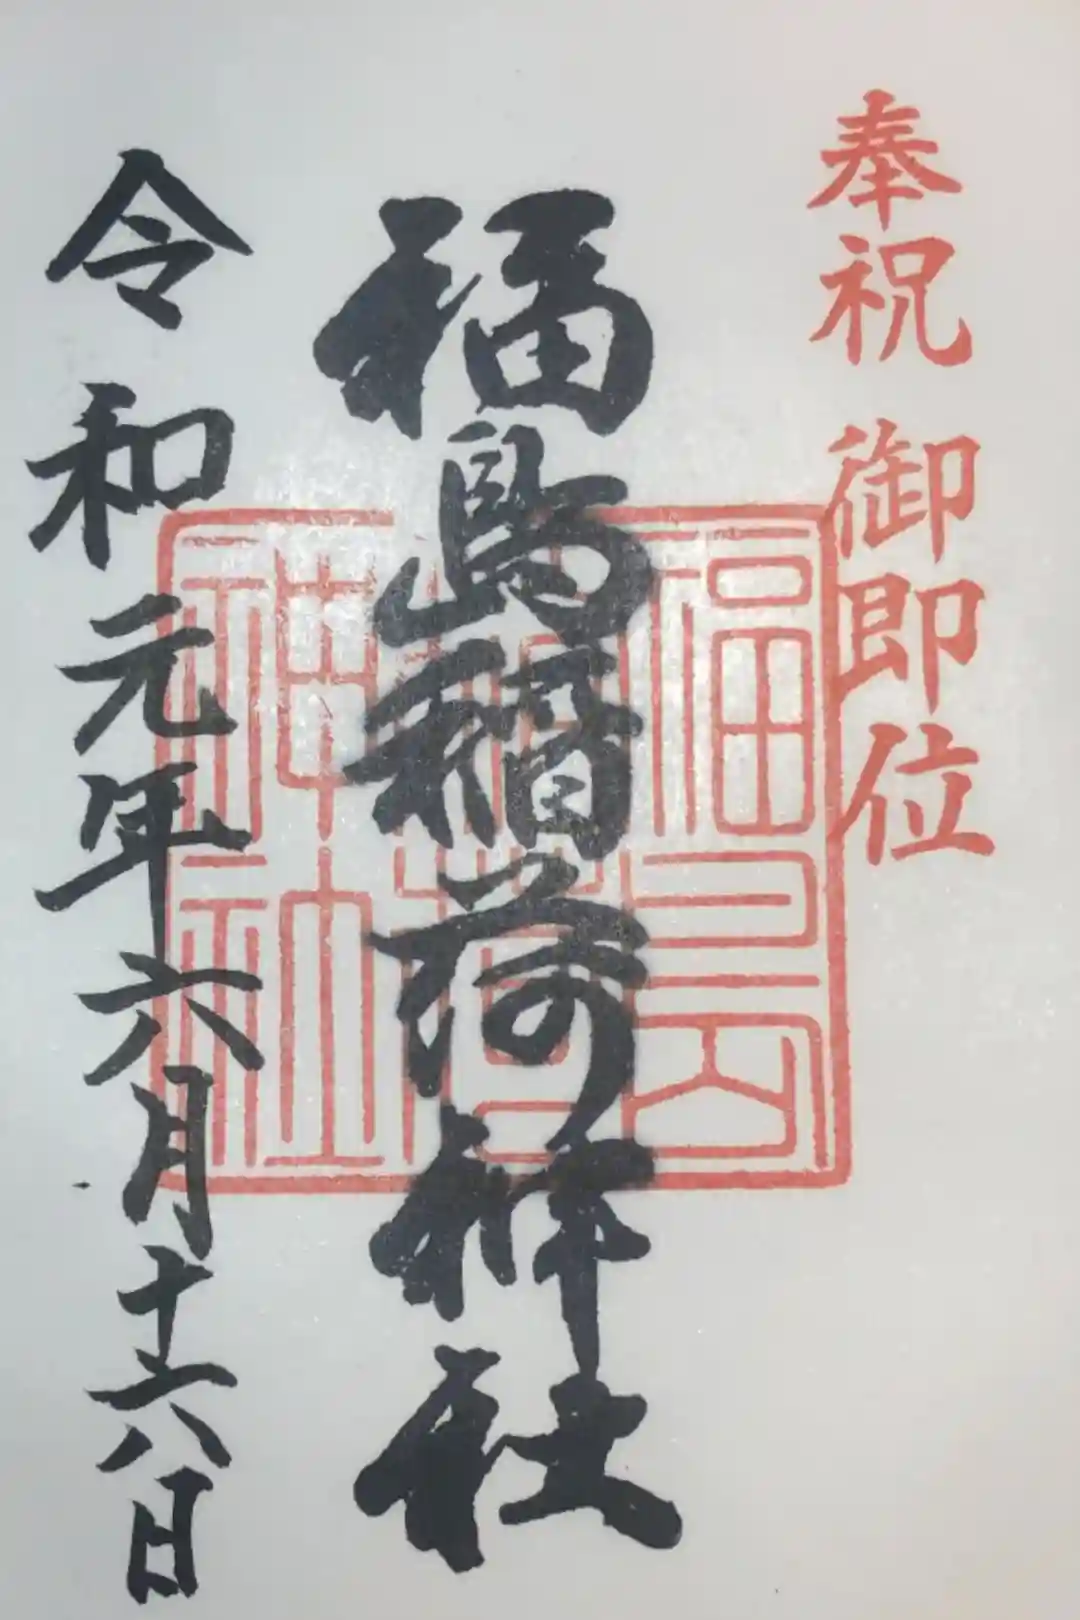 奉祝 御即位
福島稲荷神社
福島
稲荷
神社
令和元年六月十六日